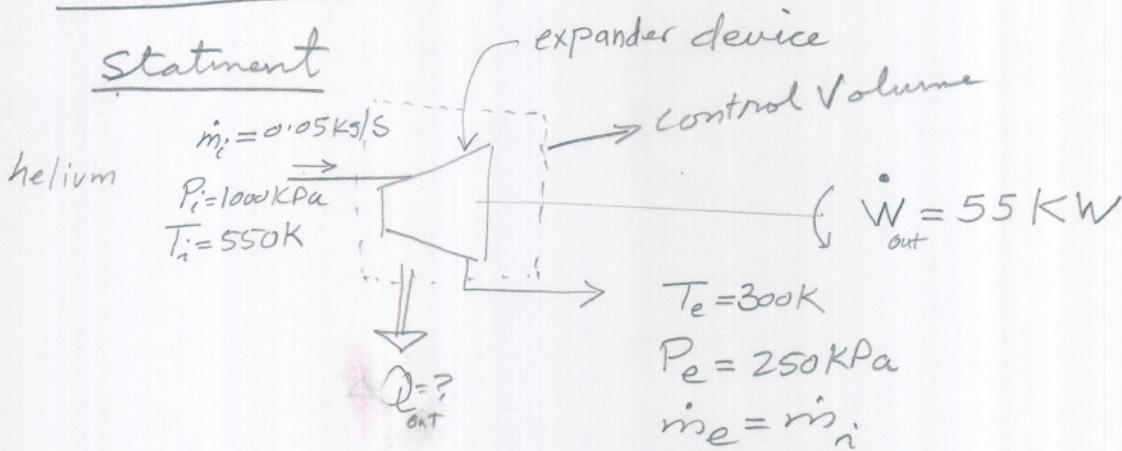 Statment
expander device
control Volume
helium
ṁi = 0.05 kg/S
Pi = 1000 KPa
Ti = 550K
Ẇout = 55 KW
Te = 300K
Pe = 250 KPa
ṁe = ṁi
Qout = ?